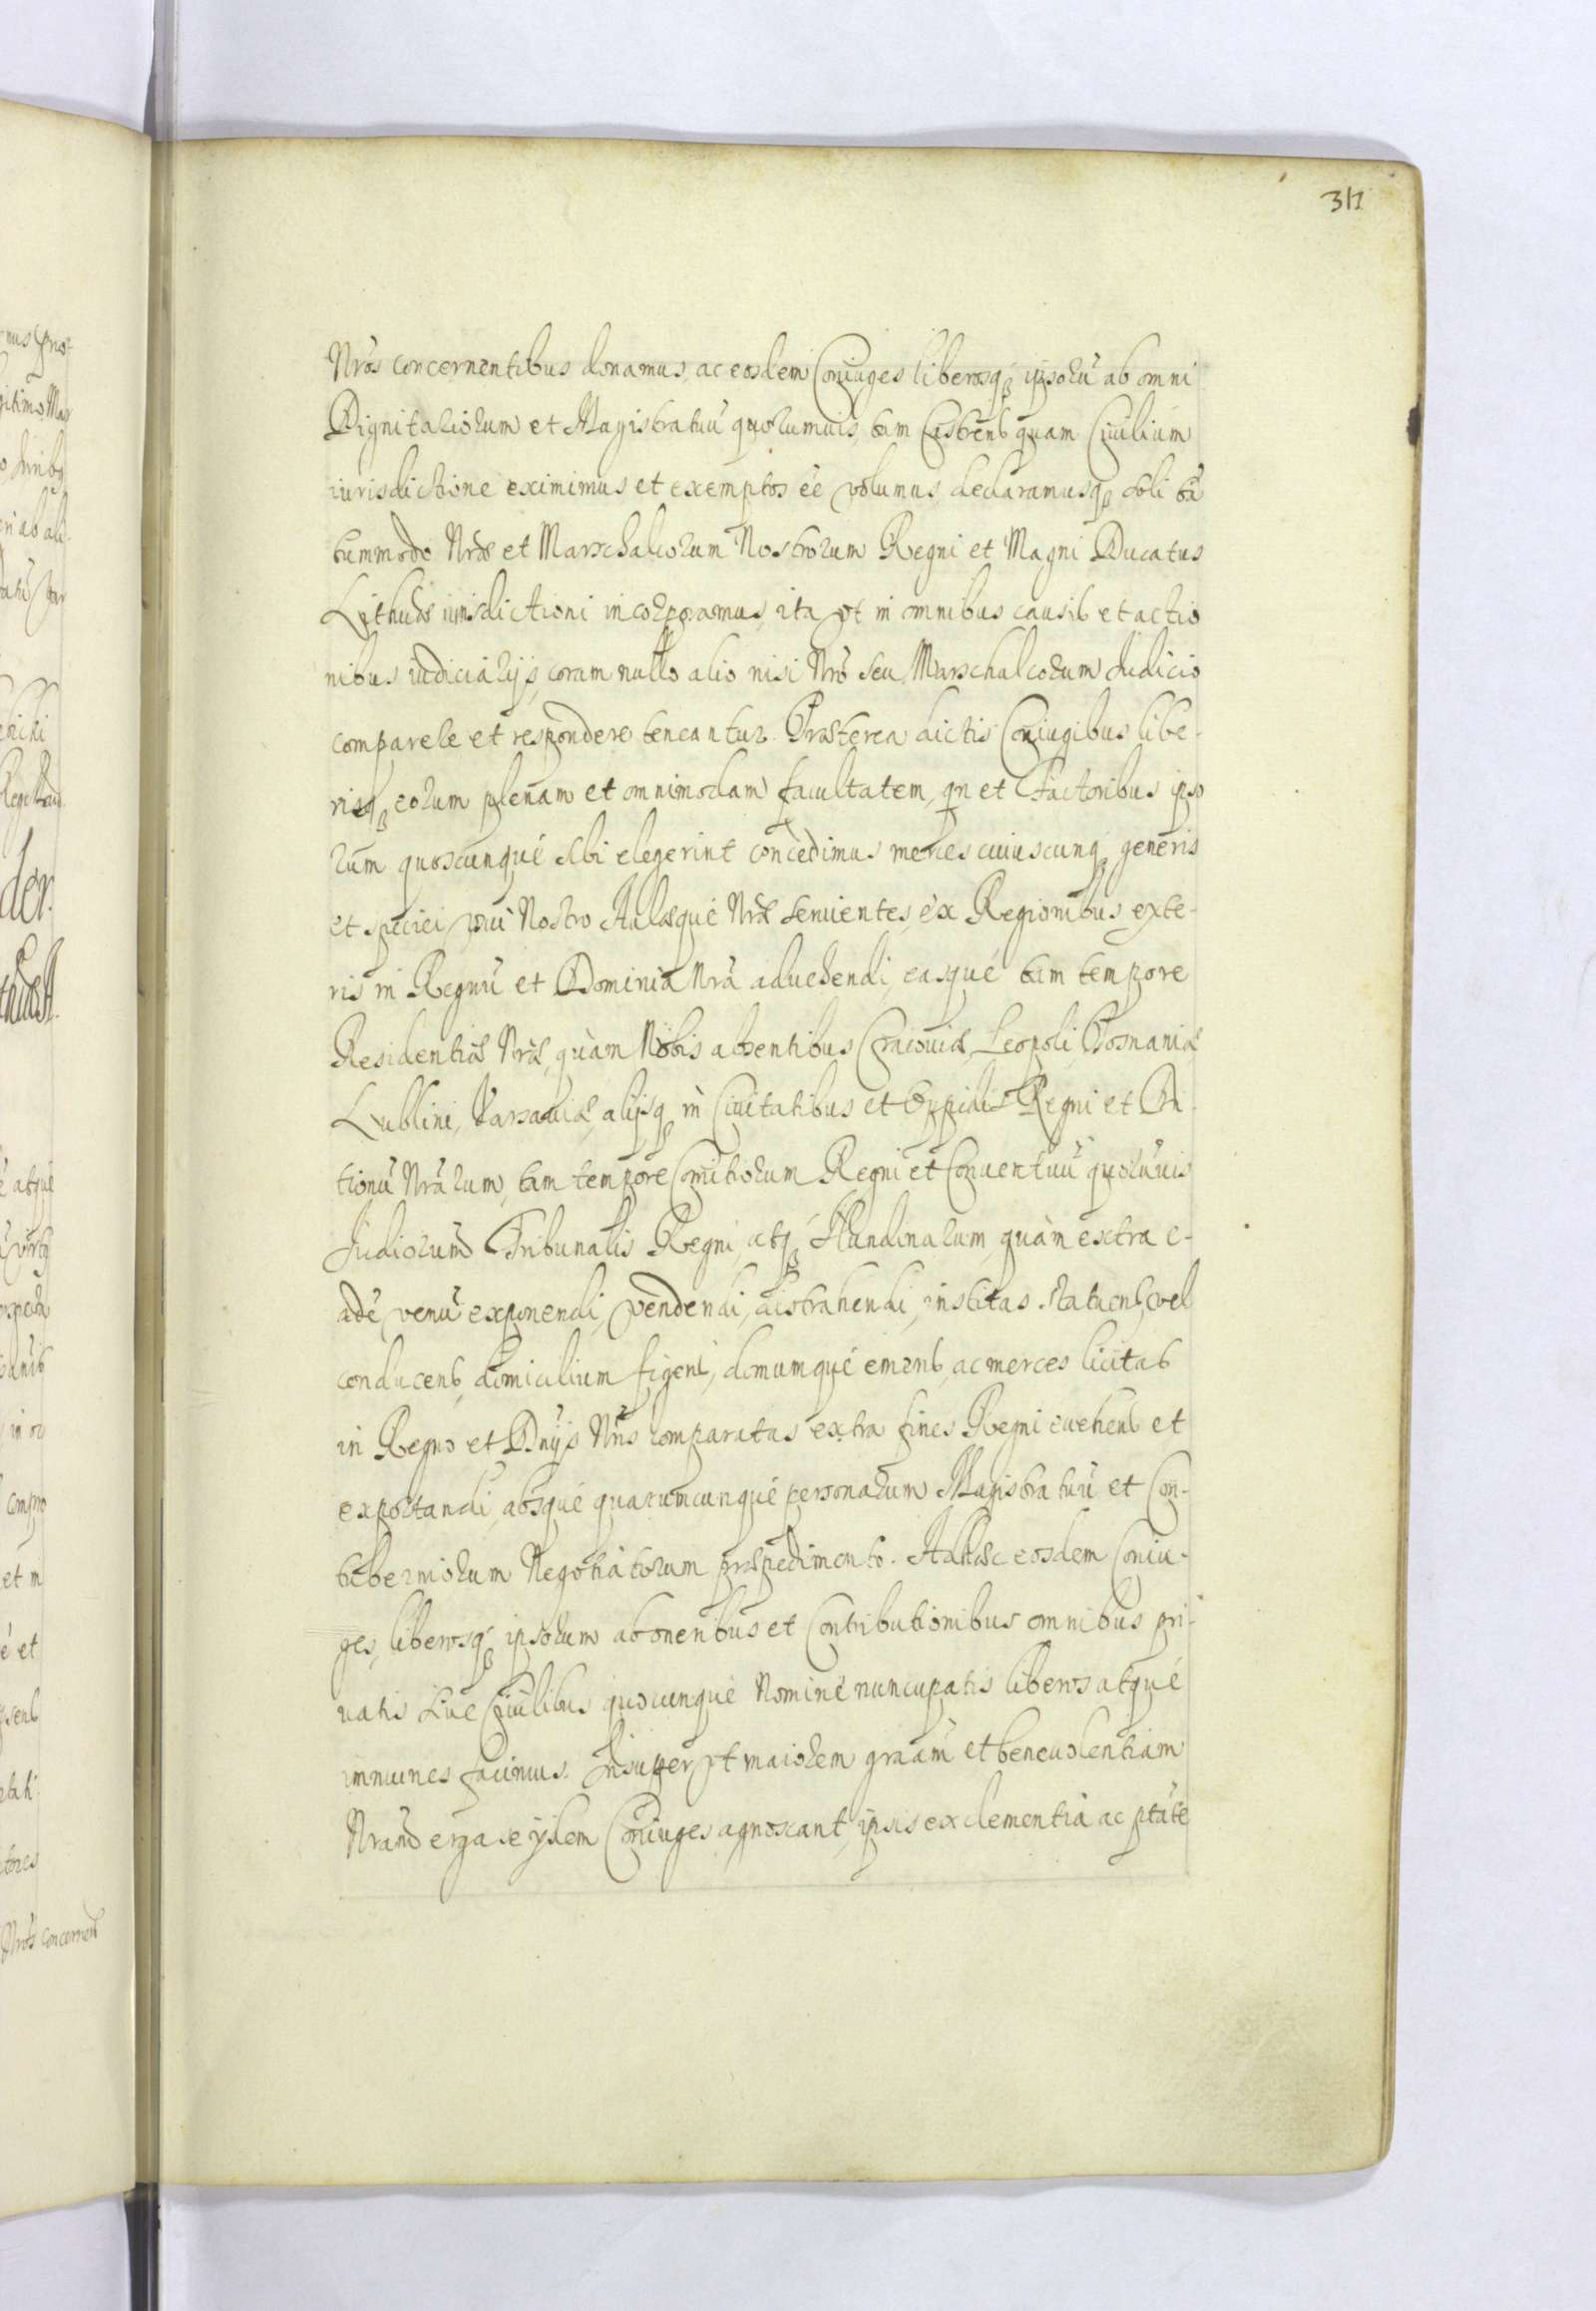 311
Nros concernentibus donamus, ac eosdem Coniuges liberosq; ipsorũ ab omni
Dignitariorum et Magistratuũ quorumuis, tam Castrens quam Ciuilium
iurisdictione eximimus et exemptos eẽ volumus, declaramusq; soli tã
tummodo Nræ et Marschalcorum Nostrorum Regni et Magni Ducatus
Lithuæ iurisdictioni incorporamus, ita vt in omnibus causis et actio
nibus iudiciarijs, coram nullo alio nisi Nro seu Marschalcorum Judicio
comparere et respondere teneantur. Præterea dictis Coniugibus libe-
risq; eorum plenam et omnimodam facultatem, qn et Factoribus ipso
rum quoscunqué sibi elegerint concedimus merces cuiuscunq; generis
et speciei vsui Nostro Aulæqué Nræ seruientes, ex Regionibus exte-
ris in Regnũ et Dominia Nra aduehendi, easqué tam tempore
Residentiæ Nræ, quàm Nobis absentibus Cracouiæ, Leopoli, Posnaniæ
Lublini, Varsauiæ, alijsq; in Ciuitatibus et Oppidis Regni et Di
tionũ Nrarum, tam tempore Comitiorum Regni et Conuentuũ quorũuis
Judiciorum Tribunalis Regni, atq; Nundinarum, quàm extra e-
adẽ venũ exponendi, vendendi, distrahendi, institas statuend vel
conducend, domicilium figend, domumqué emend, ac merces licitas
in Regno et Dnijs Nris comparatas extra fines Regni euehend et
exportandi, absqué quarumcunqué personarum Magistratuũ et Con-
tuberniorum Negotiatorum præpedimento. Ad hæc eosdem Coniu-
ges, liberosq; ipsorum ab oneribus et Contributionibus omnibus pri-
uatis siue Ciuilibus quocunqué Nominé nuncupatis liberos atqué
immunes facimus. Insuper vt maiorem graam et beneuolentiam
Nram erga se ijdem Coniuges agnoscant, ipsis ex clementia ac ptate